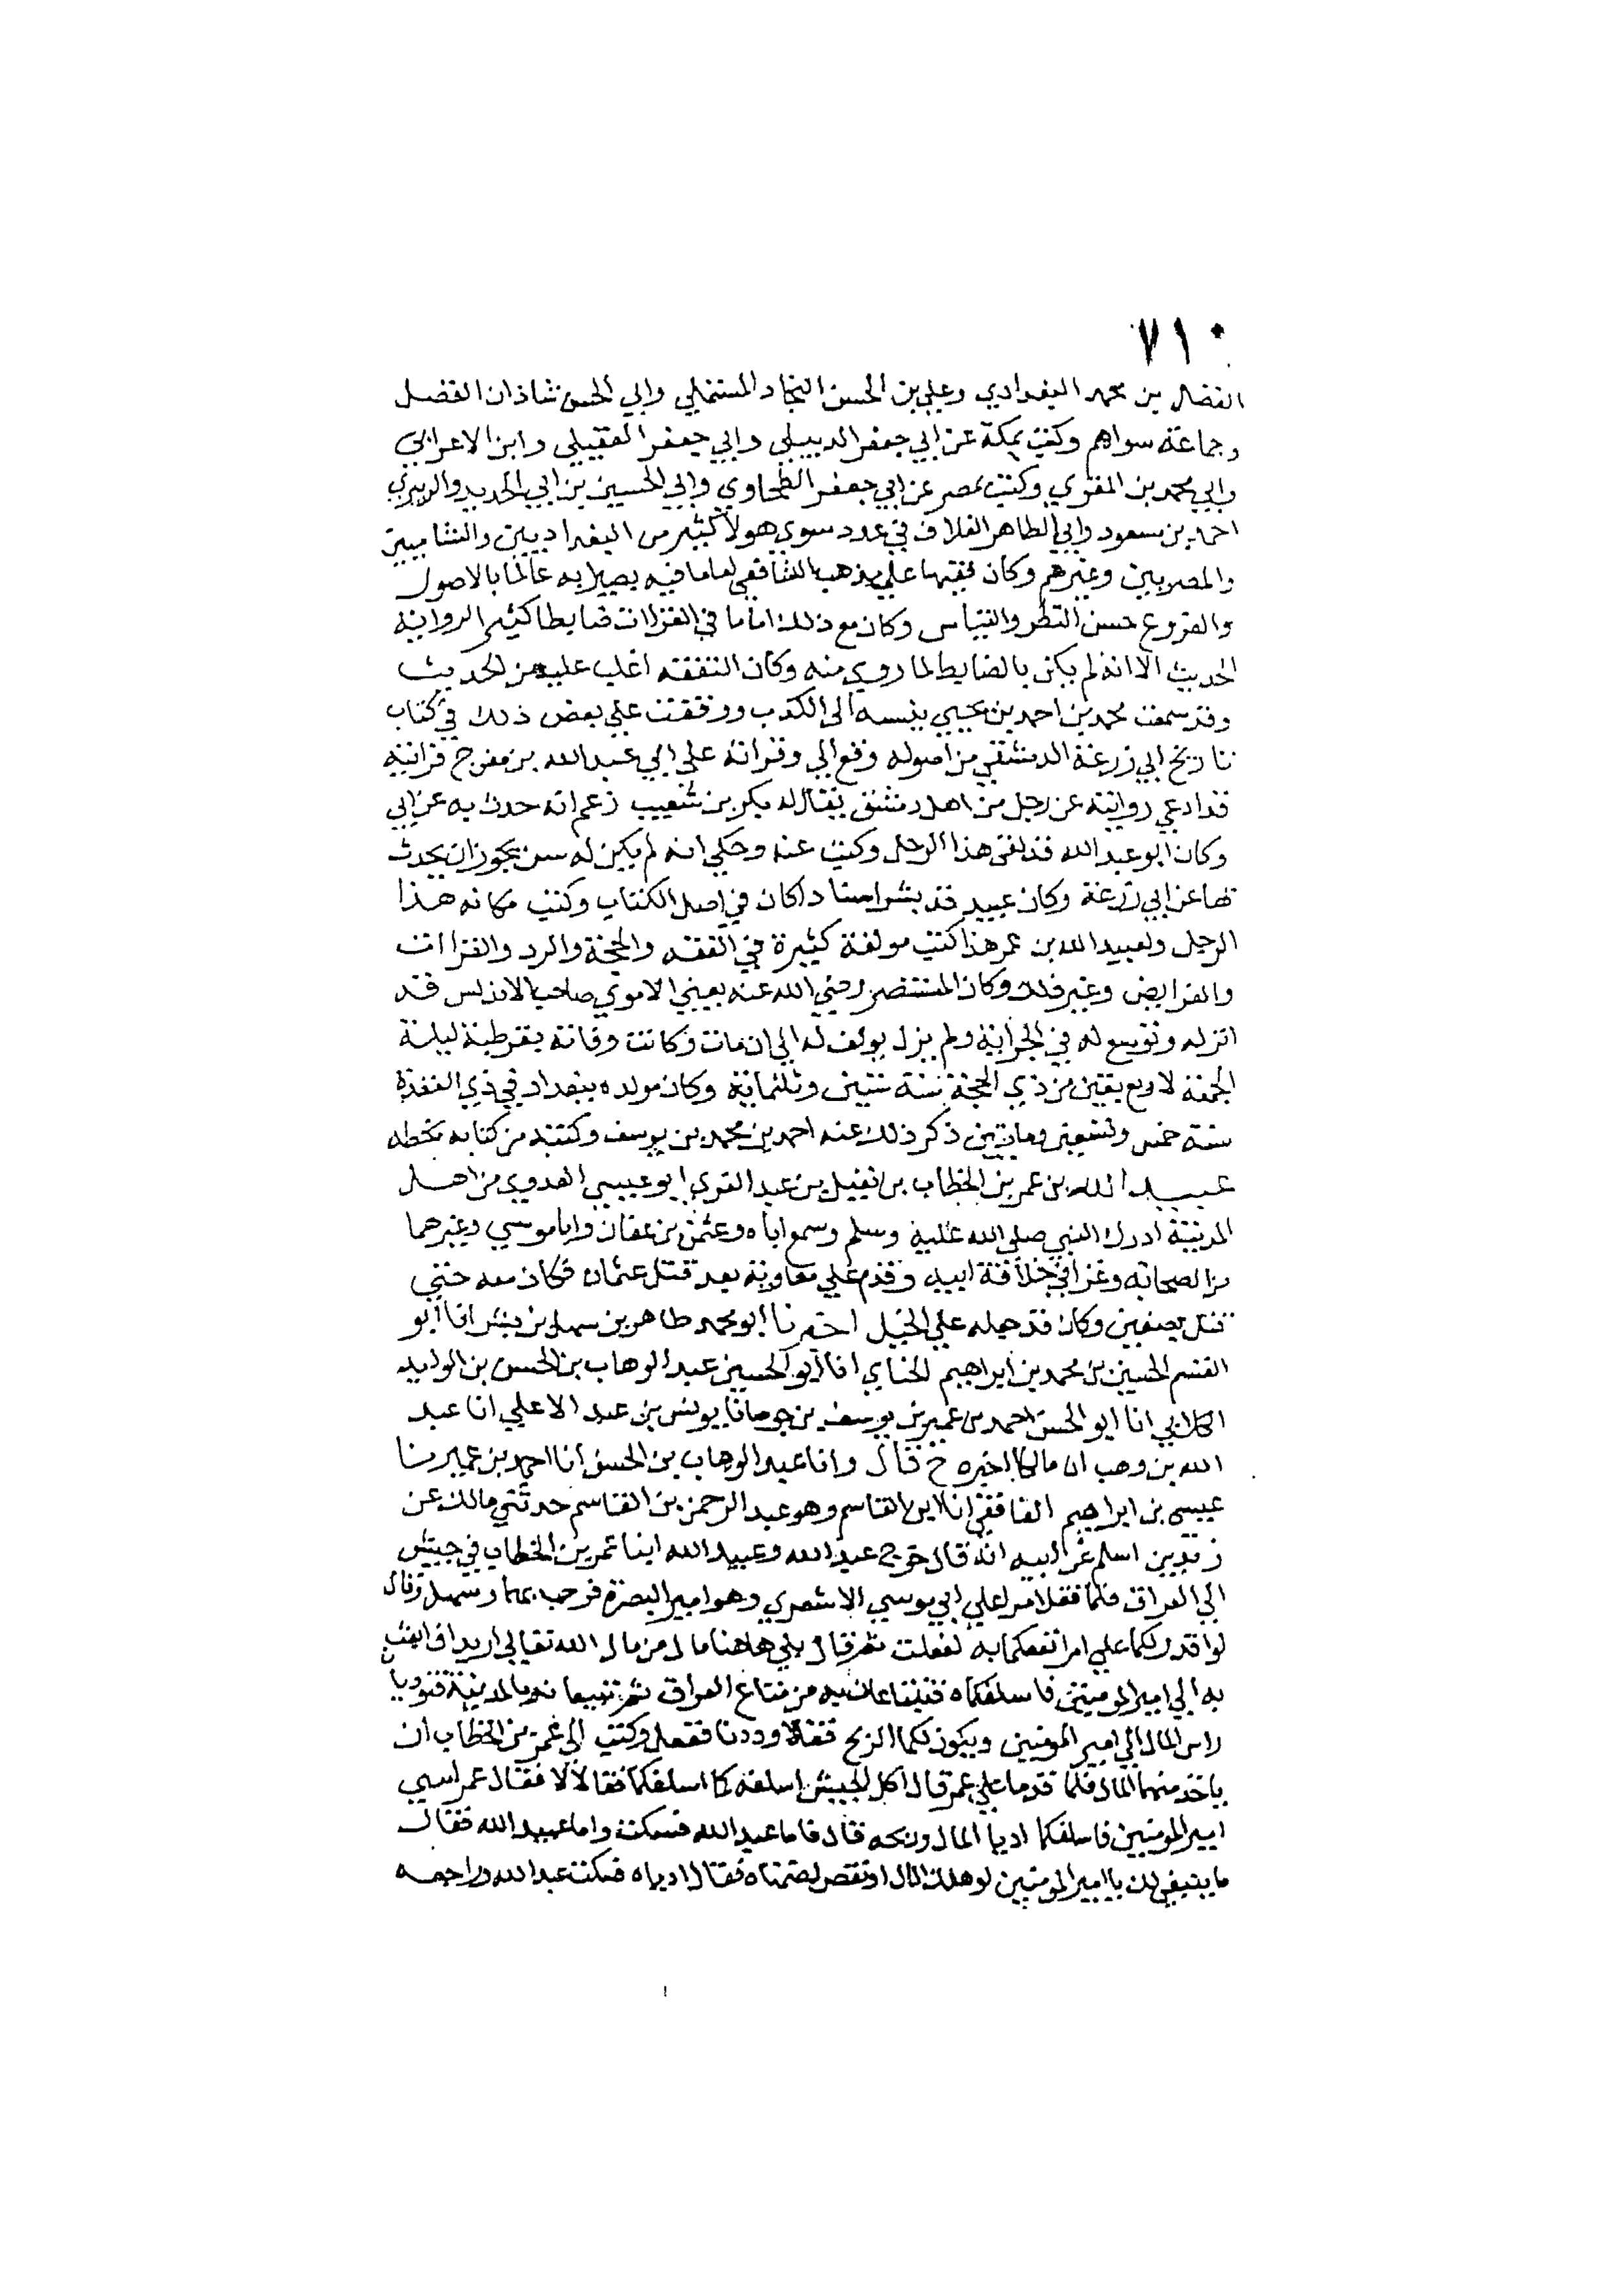 ٧١٠
الفضل بن محمد البغدادي وعلي بن الحسن النجاد المستملي وابي الحسن شاذان الفضل
وجماعة سواهم وكتب بمكة عن ابي جعفر الدبيلي وابي جعفر العقيلي وابن الاعرابي
وابي محمد بن المقري وكتب بمصر عن ابي جعفر الطحاوي وابي الحسين بن ابي الحديد والزبيري
احمد بن مسعود وابي الطاهر العلاف في عدد سوي هولا كثير من البغداديين والشاميين
والمصريين وغيرهم وكان فقيها علي مذهب الشافعي اماما فيه بصيرا به عالما بالاصول
والفروع حسن النظر والقياس وكان مع ذلك اماما في القراات ضابطا كثير الرواية
الحديث الا انه لم يكن بالضابط لما روي منه وكان التفقه اغلب عليه من الحديث
وقد سمعت محمد بن احمد بن يحيي ينسبه الى الكذب ووقفت علي بعض ذلك في كتاب
تاريخ ابي زرعة الدمشقي من اصوله وقع الي وقراته علي ابي عبد الله بن مفرج فرايته
قد ادعي روايته عن رجل من اهل دمشق يقال له بكر بن شعيب زعم انه حدث به عن ابي
وكان ابو عبد الله قد لقي هذا الرجل وكتب عنه وحكي انه لم يكن له سن يجوز ان يحدث
بها عن ابي زرعة وكان عبيد قد بشر اسنادا كان في اصل الكتاب وكتب مكانه هذا
الرجل ولعبيد الله بن عمر هذا كتب مولفة كثيرة في الفقه والحجة والرد والقراات
والفرايض وغير ذلك وكان المستنصر رضي الله عنه يعيني الاموي صاحب الاندلس قد
انزله وتوسع له في الجراية ولم يزل يولف له الي ان مات وكانت وفاته بقرطبة ليلة
الجمعة لاربع بقين من ذي الحجة سنة ستين وثلثماية وكان مولده ببغداد في ذي القعدة
سنة خمس وتسعين ومايتين ذكر ذلك عنه احمد بن محمد بن يوسف وكتبته من كتابه بخطه
عبيد الله بن عمر بن الخطاب بن نفيل بن عبد العزي ابو عيسي العدوي من اهل
المدينة ادرك النبي صلي الله عليه وسلم وسمع اباه وعثمن بن عفان وابا موسي وغيرهما
من الصحابه وغزا في خلافة ابيه وقدم علي معاوية بعد قتل عثمان فكان معه حتي
قتل بصفين وكان قد جعله علي الخيل اخبرنا ابو محمد طاهر بن سهل بن بشر انا ابو
القسم الحسين بن محمد بن ابراهيم الحناي انا ابو الحسين عبد الوهاب بن الحسن بن الوليد
الكلابي انا ابو الحسن احمد بن عمير بن يوسف بن جوصا نا يونس بن عبد الاعلي انا عبد
الله بن وهب ان مالكا اخبره ح قال وانا عبد الوهاب بن الحسن انا احمد بن عمير نا
عيسي بن ابراهيم الغافقي انا ابن القاسم وهو عبد الرحمن بن القاسم حدثني مالك عن
زيد بن اسلم عن ابيه انه قال خرج عبد الله وعبيد الله ابنا عمر بن الخطاب في جيش
الي العراق فلما قفلا مرا علي ابي موسي الاشعري وهو امير البصرة فرحب بهما وسهل وقال
لو اقدر لكما علي امر انفعكما به لفعلت ثم قال بلي هاهنا مال من مال الله تعالي اريد ان ابعث
به الي امير المومنين فاسلفكماه فتبتاعان به من متاع العراق ثم تبيعانه بالمدينة فتوديا
راس المال الي امير المومنين ويكون لكما الربح فقالا وددنا ففعل وكتب الي عمر بن الخطاب ان
ياخذ منهما المال فلما قدما علي عمر قال اكل الجيش اسلفه كما اسلفكما فقالا لا فقال عمر ابني
امير المومنين فاسلفكما اديا المال وربحه قال فاما عبد الله فسكت واما عبيد الله فقال
ما ينبغي لك يا امير المومنين لو هلك المال او نقص لضمناه فقال ادياه فسكت عبد الله وراجعه